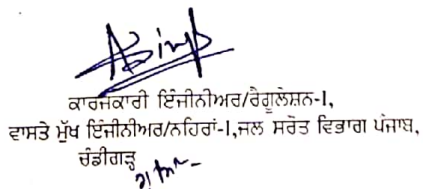 ਕਾਰਜਕਾਰੀ ਇੰਜੀਨੀਅਰ/ਰੈਗੂਲੇਸ਼ਨ-1,
ਵਾਸਤੇ ਮੁੱਖ ਇੰਜੀਨੀਅਰ/ਨਹਿਰਾਂ-1,ਜਲ ਸਰੋਤ ਵਿਭਾਗ ਪੰਜਾਬ,
ਚੰਡੀਗੜ੍ਹ